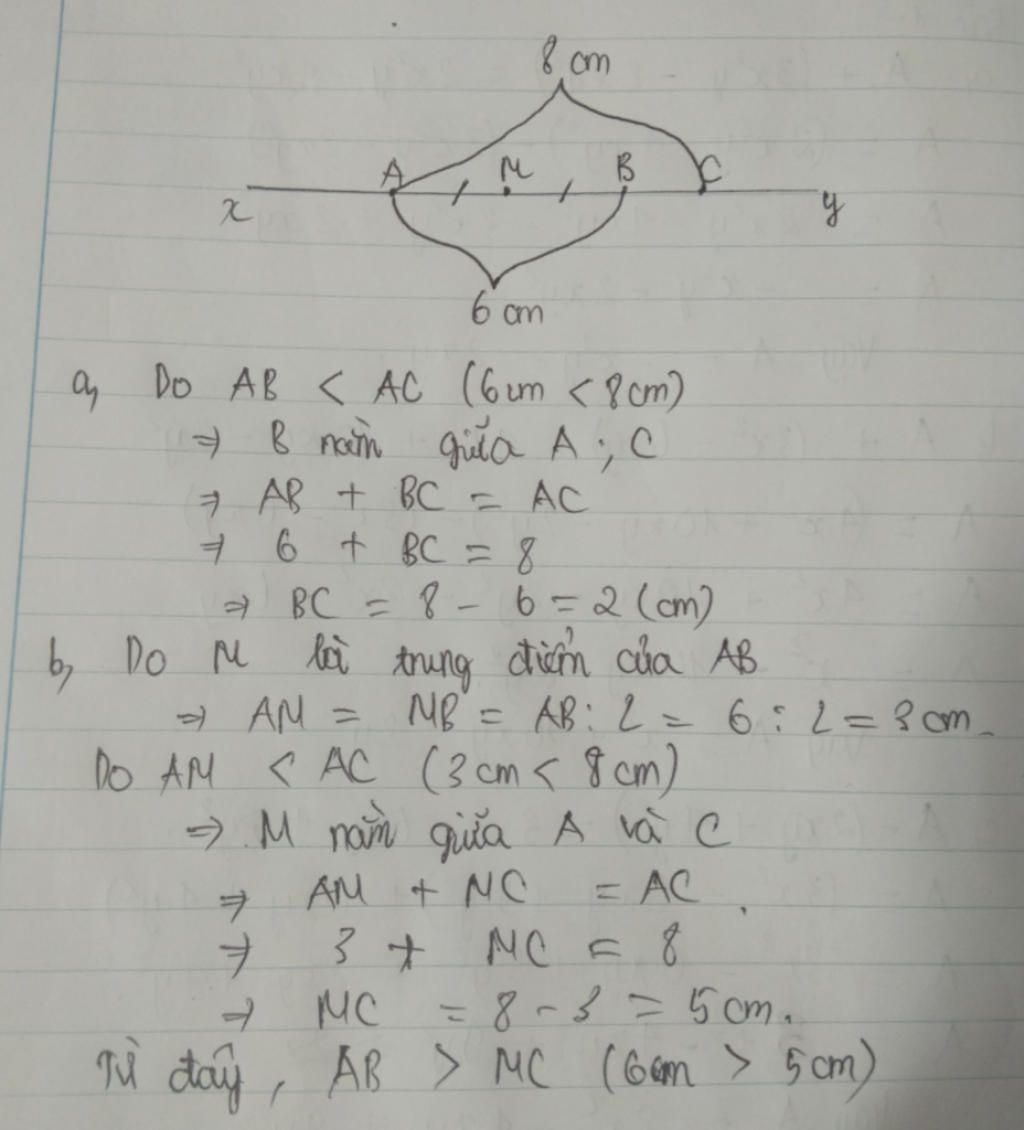 8 cm
A M B C
x y
6 cm
a, Do AB < AC (6cm < 8cm)
⇒ B nằm giữa A ; C
⇒ AB + BC = AC
⇒ 6 + BC = 8
⇒ BC = 8 - 6 = 2 (cm)
b, Do M là trung điểm của AB
⇒ AM = MB = AB : 2 = 6 : 2 = 3 cm.
Do AM < AC (3cm < 8cm)
⇒ M nằm giữa A và C
⇒ AM + MC = AC .
⇒ 3 + MC = 8
⇒ MC = 8 - 3 = 5 cm.
Từ đây, AB > MC (6cm > 5cm)